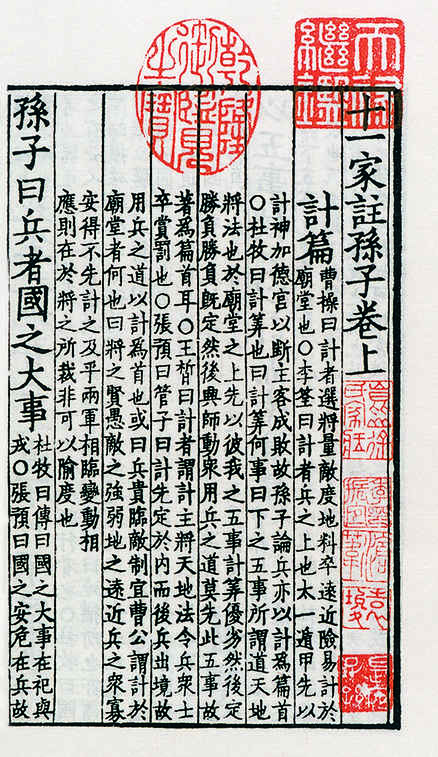 天祿繼鑑
乾隆御覽之寶
十一家註孫子卷上
計篇
曹操曰計者選將量敵度地料卒遠近險易計於
廟堂也○李筌曰計者兵之上也太一遁甲先以
計神加德宮以斷主客成敗故孫子論兵亦以計爲篇首
○杜牧曰計筭也曰計筭何事曰下之五事所謂道天地
將法也於廟堂之上先以彼我之五事計筭優劣然後定
勝負勝負既定然後興師動衆用兵之道莫先此五事故
著爲篇首耳○王晳曰計者謂計主將天地法令兵衆士
卒賞罰也○張預曰管子曰計先定於內而後兵出境故
用兵之道以計爲首也或曰兵貴臨敵制宜曹公謂計於
廟堂者何也曰將之賢愚敵之強弱地之遠近兵之衆寡
安得不先計之及乎兩軍相臨變動相
應則在於將之所裁非可以隃度也
孫子曰兵者國之大事
杜牧曰傳曰國之大事在祀與
戎○張預曰國之安危在兵故